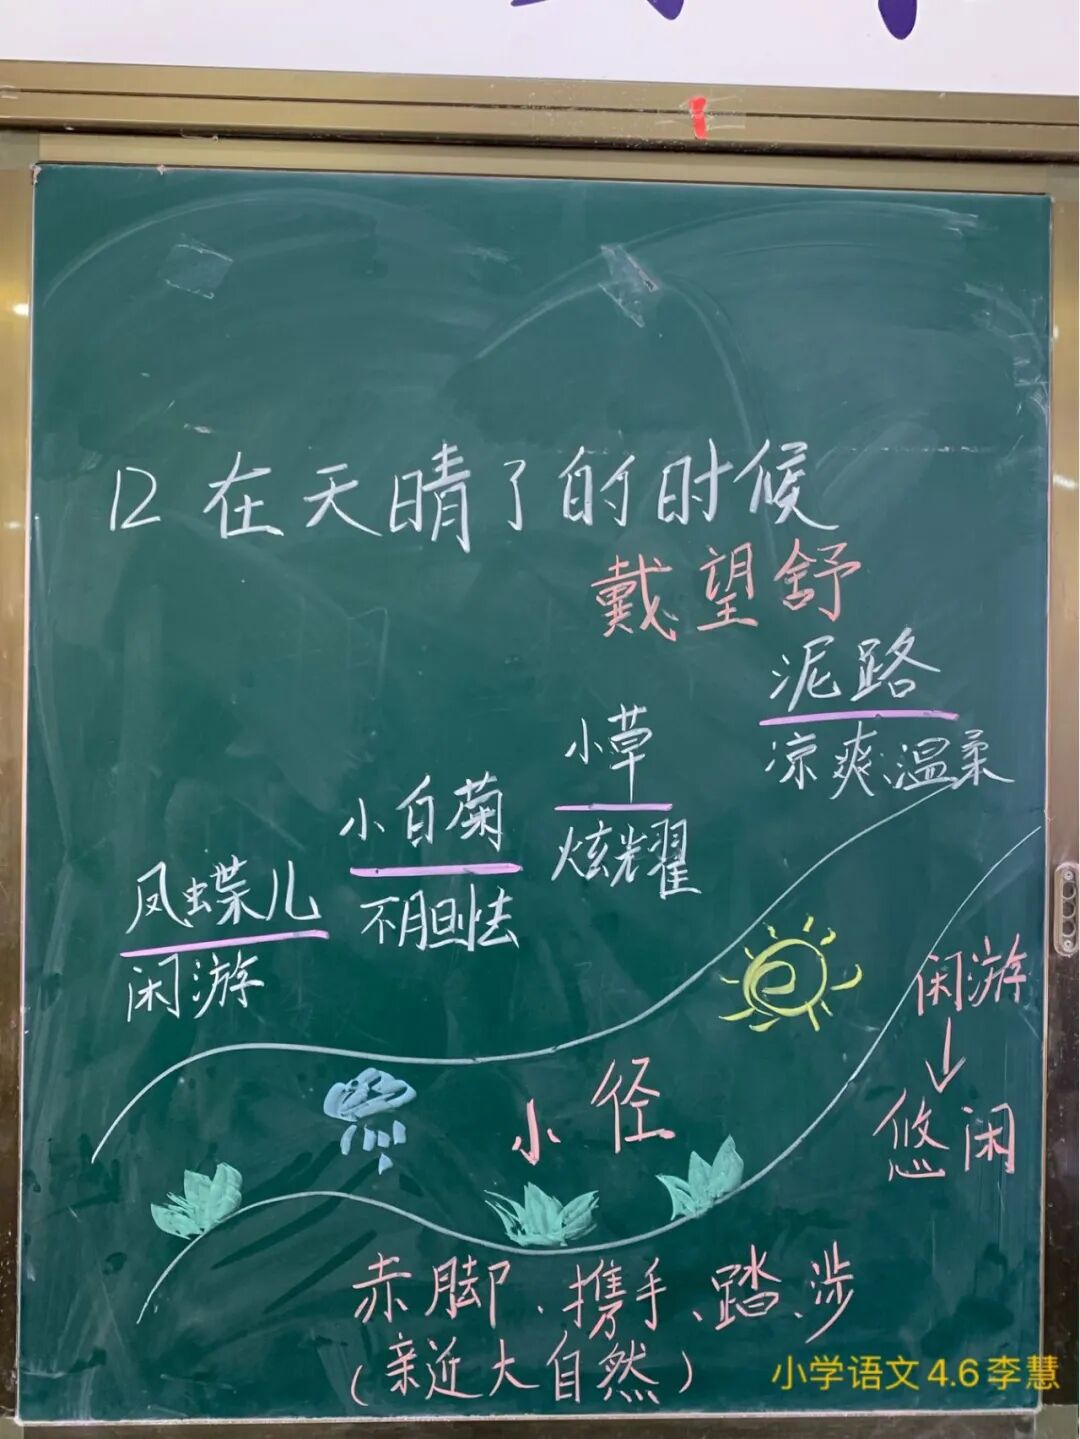 12 在天晴了的时候
戴望舒
泥路
凉爽、温柔
小草
炫耀
小白菊
不胆怯
凤蝶儿
闲游
闲游
↓
悠闲
小径
赤脚、携手、踏、涉
(亲近大自然)
小学语文4.6李慧